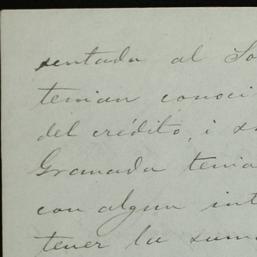 sentada al So
tenian conoci
del crédito, i su
Granada tenia
con algun int
tener la suma